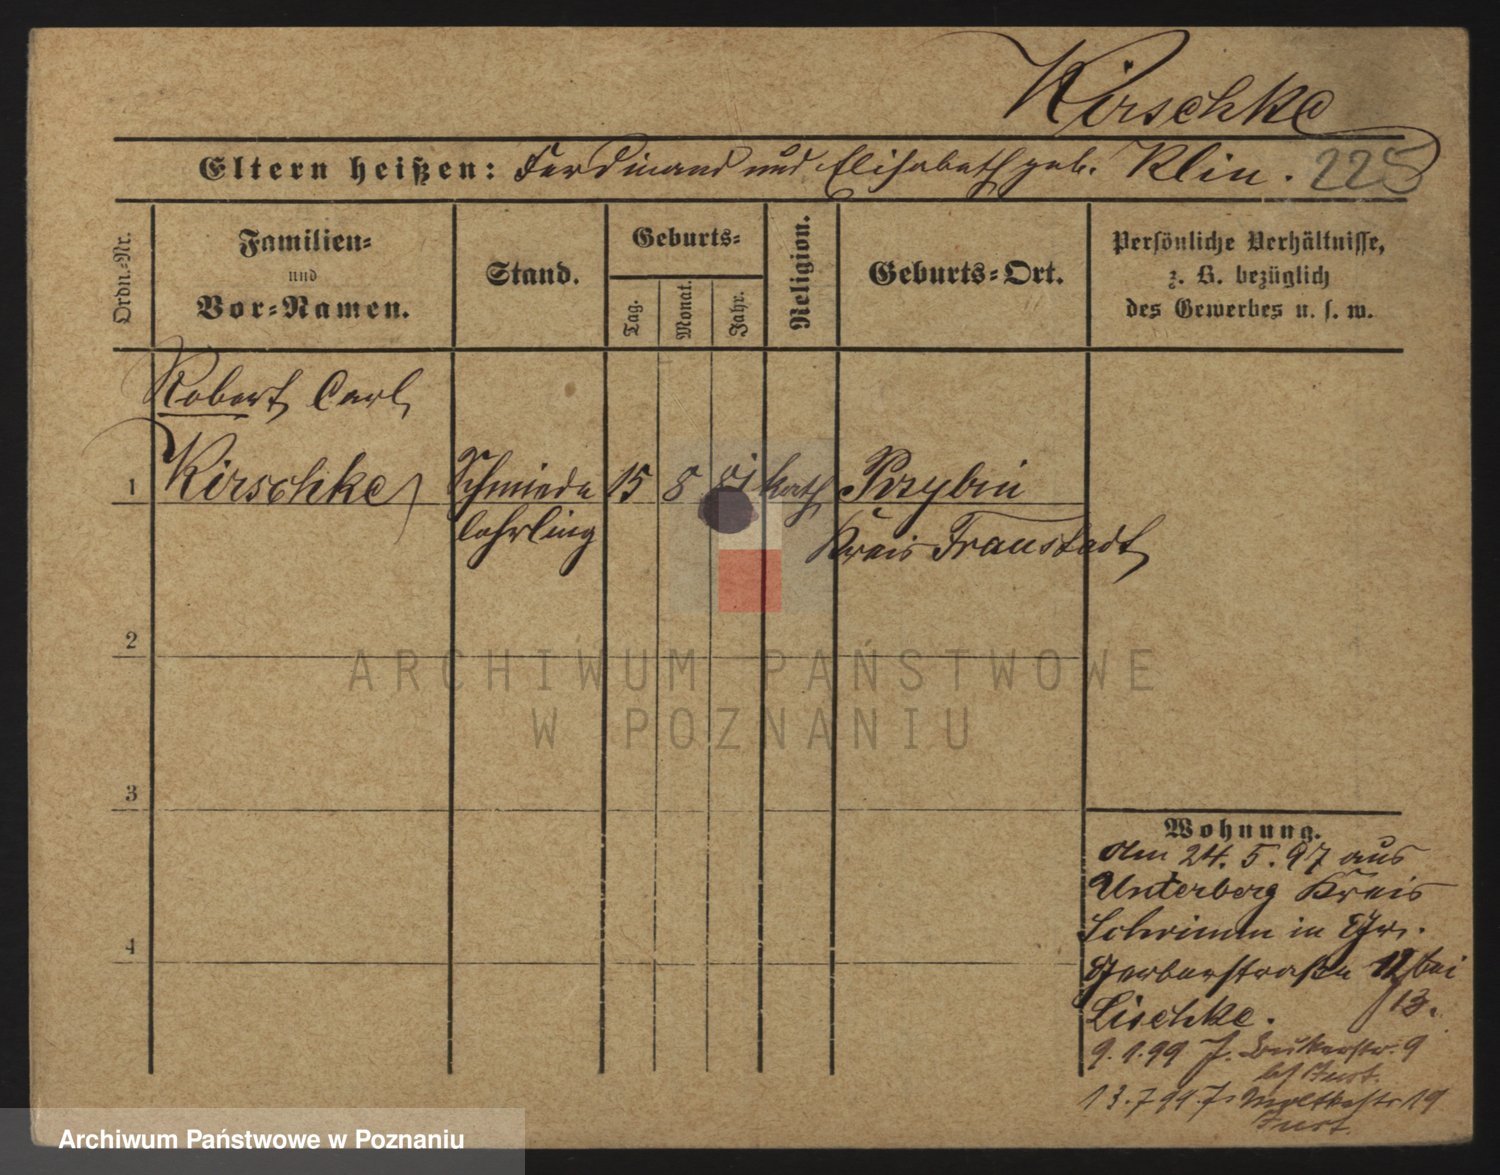 Kirschke
Eltern heißen: Ferdinand und Elisabeth geb. Klin. 225
Ordn.-Nr.
Familien-
und
Vor-Namen.
Stand.
Geburts-
Tag.
Monat.
Jahr.
Religion.
Geburts-Ort.
Persönliche Verhältnisse,
z. B. bezüglich
des Gewerbes u. s. w.
Robert Carl
1 Kirschke Schmiede 15 8 81 kath Przybin
lehrling Kreis Fraustadt
2
ARCHIWUM PAŃSTWOWE
W POZNANIU
3
Wohnung.
Am 24. 5. 97 aus
Unterberg Kreis
Schrimm in Gr.
4
Gerberstraße 12 bei
Lischke. 13.
9. 1. 99 J. 9
13. 7 99. J. Moltkestr 19
Archiwum Państwowe w Poznaniu